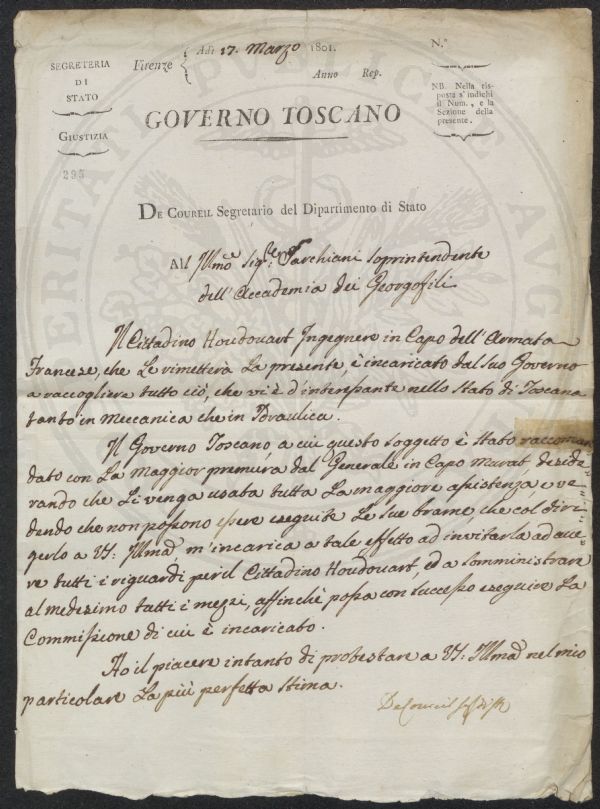 SEGRETERIA
DI
STATO
GIUSTIZIA
295
Firenze { Adì 17. Marzo 1801.
Anno Rep.
N.°
NB. Nella ris-
posta s'indichi
il Num., e la
Sezione della
presente.
GOVERNO TOSCANO
DE COUREIL Segretario del Dipartimento di Stato
All' Illmo Sigre Sarchiani Soprintendente
dell'Accademia dei Georgofili
Il Cittadino Houdouart Ingegnere in Capo dell'Armata
Francese, che Le rimetterà La presente, è incaricato dal suo Governo
a raccogliere tutto ciò, che vi è d'interessante nello Stato di Toscana
tanto in Meccanica che in Idraulica.
Il Governo Toscano a cui questo soggetto è stato raccoman
dato con La maggior premura dal Generale in Capo Murat, deside-
rando che Li venga usata tutta La maggiore assistenza, e ve-
dendo che non possono essere eseguite Le sue brame, che col diri-
gerlo a VS: Illma m'incarica a tale effetto ad invitarla ad ave-
re tutti i riguardi per il Cittadino Houdouart, ed a somministrare
al medesimo tutti i mezzi, affinchè possa con successo eseguire La
Commissione di cui è incaricato.
Ho il piacere intanto di protestare a VS: Illma nel mio
particolare La più perfetta stima.
DeCoureil